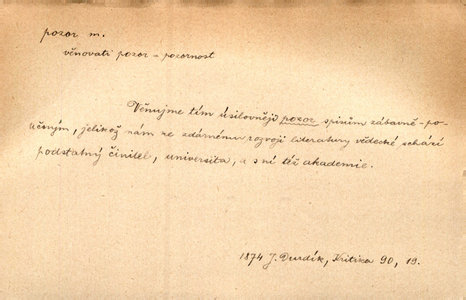 pozor m.
věnovati pozor - pozornost
Věnujme tím úsilovněji pozor spisům zábavně-po-
učným, jelikož nám ke zdárnému rozvoji literatury vědecké schází
podstatný činitel, universita, a s ní též akademie.
1874 J. Durdík, Kritika 90, 19.